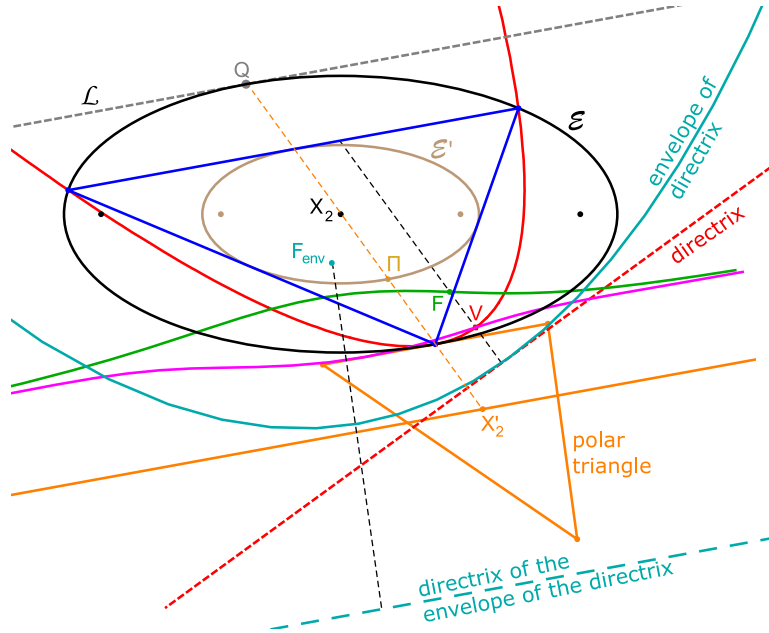 Q
ℒ
ℰ
ℰ'
envelope of
directrix
directrix
X₂
F_env
Π
F
V
X'₂
polar
triangle
directrix of the
envelope of the directrix